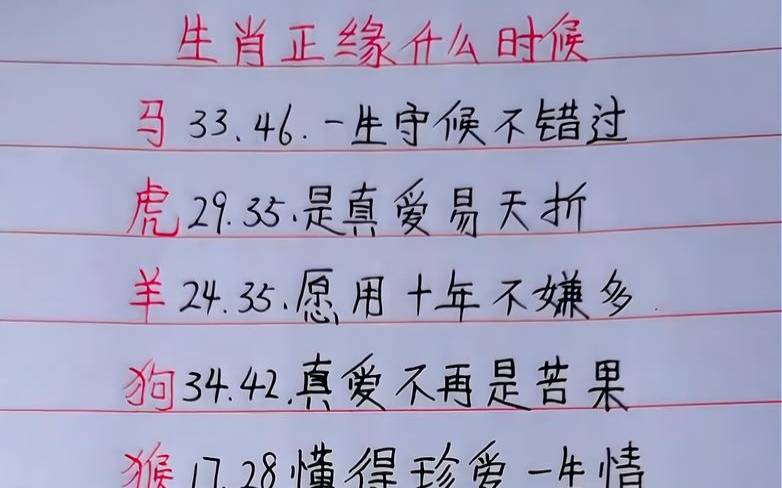 生肖正缘什么时候
马 33、46.一生守候不错过
虎 29.35、是真爱易夭折
羊 24.35、愿用十年不嫌多
狗 34.42、真爱不再是苦果
猴 17.28懂得珍爱一生情